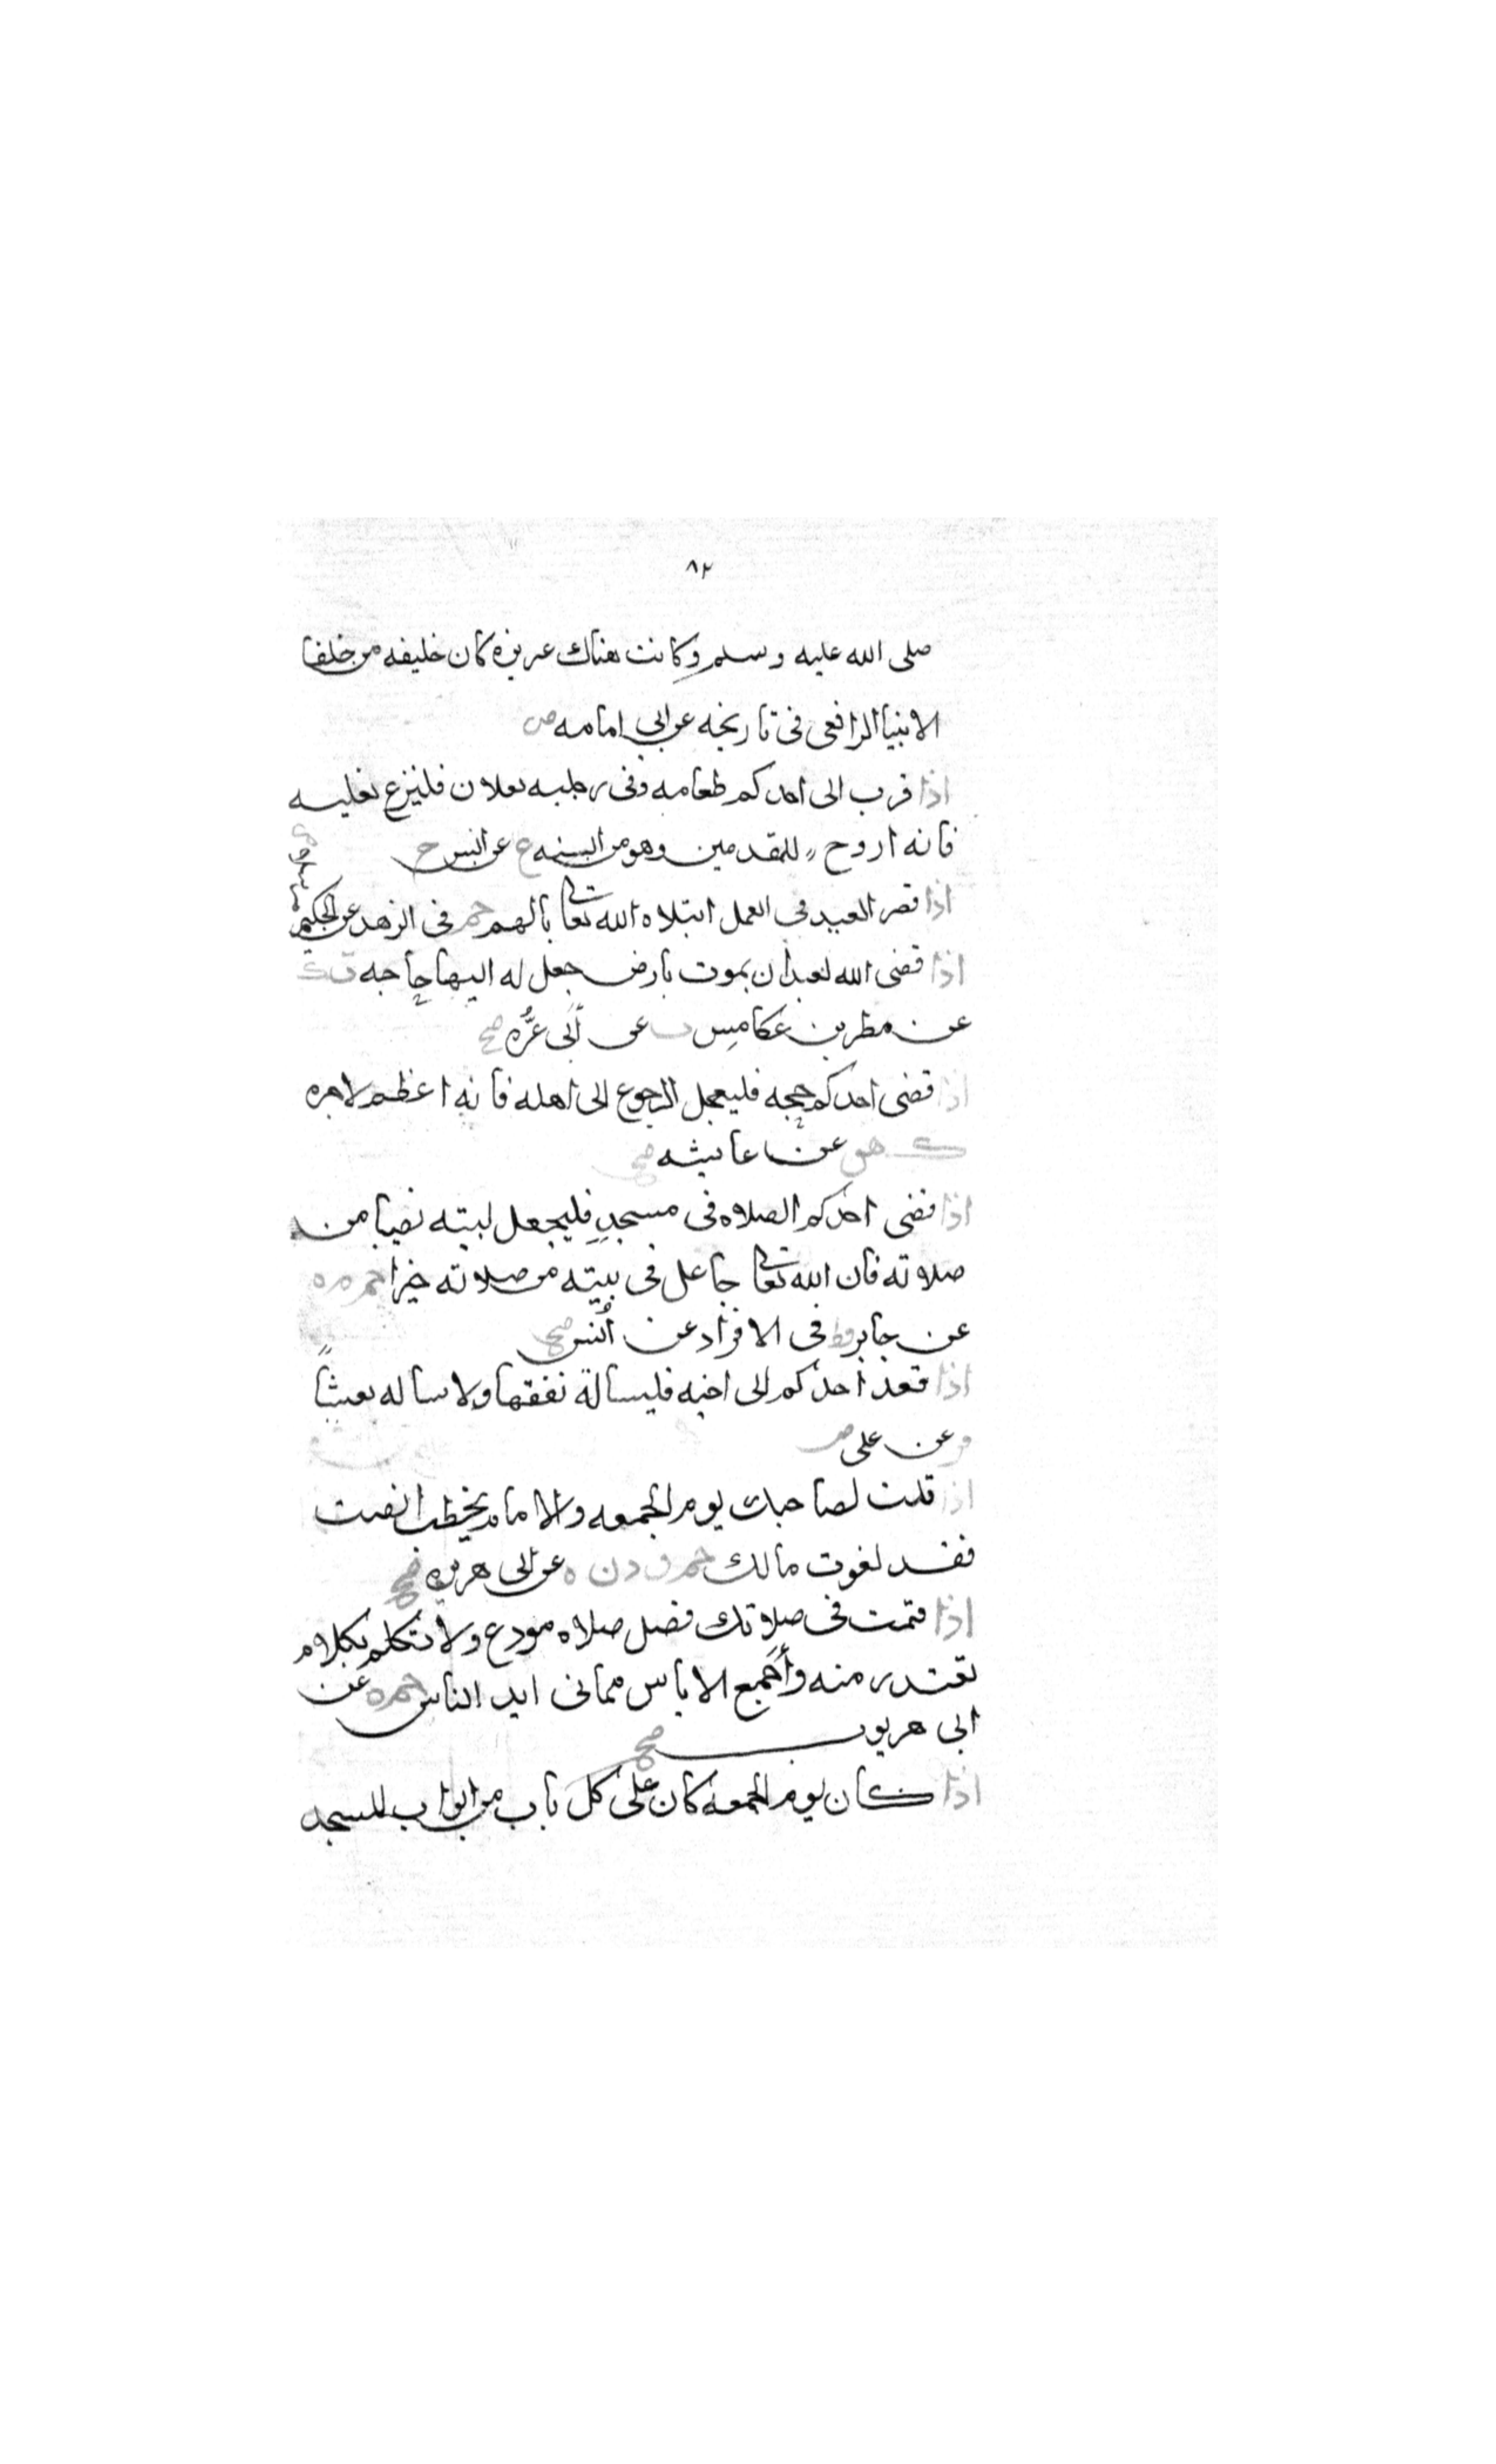 ٨٢
صلى الله عليه وسلم وكانت هناك عريزه كان خليفه من خلفا
الانبيا الرافعى فى تاريخه عن ابى امامه ض
اذا قرب الى احدكم طعامه وفى رجليه نعلان فلينزع نعليه
فانه اروح للقدمين وهو من السنه ع عن انس ح
اذا قصر العبد فى العمل ابتلاه الله تعالى بالهم حم فى الزهد عن الحكم
اذا قضى الله لعبد ان يموت بارض جعل له اليها حاجه ت ك
عن مطر بن عكامِس ت عن أبى عزَّه صح
اذا قضى احدكم حجه فليعجل الرجوع الى اهله فانه اعظم لاجره
ك هق عن عائشه صح
اذا قضى احدكم الصلاه فى مسجدِه فليجعل لبيته نصيبا من
صلاته فان الله تعالى جاعل فى بيته من صلاته خيرا حم م ه
عن جابر قط فى الافراد عن أنس صح
اذا قعد أحدكم الى اخيه فليساله تفقها ولا يساله تعنتاً
فر عن على ض
اذا قلت لصاحبك يوم الجمعه والامام يخطب انصت
فقد لغوت مالك حم ق د ن ه عن ابى هريره صح
اذا قمت فى صلاتك فصل صلاه مودع ولا تكلم بكلام
تعتذر منه وأَجمع الاياس مما فى ايد الناس حم ه عن
ابى هريوب صح
اذا كان يوم الجمعه كان على كل باب من ابواب المسجد